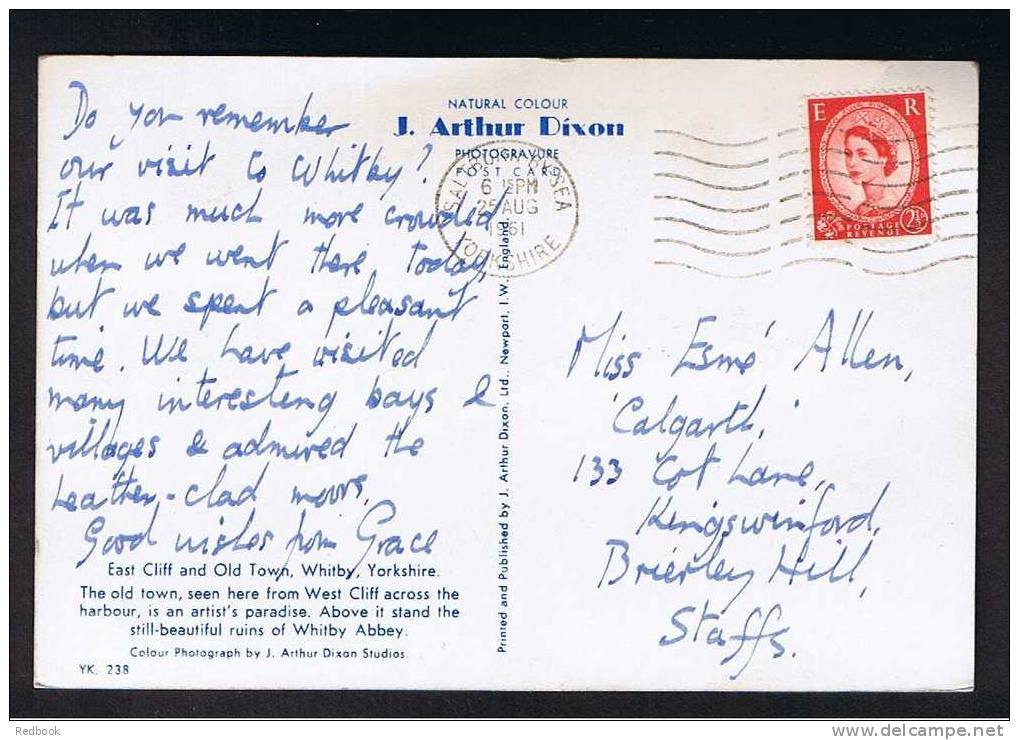 Do you remember
our visit to Whitby?
It was much more crowded
when we went there today,
but we spent a pleasant
time. We have visited
many interesting bays &
villages & admired the
heather-clad moors.
Good wishes from Grace
East Cliff and Old Town, Whitby, Yorkshire.
The old town, seen here from West Cliff across the
harbour, is an artist's paradise. Above it stand the
still-beautiful ruins of Whitby Abbey.
Colour Photograph by J. Arthur Dixon Studios.
YK. 238
NATURAL COLOUR
J. Arthur Dixon
PHOTOGRAVURE
POST CARD
Printed and Published by J. Arthur Dixon, Ltd., Newport, I.W. England.
SEA
PM
25 AUG
1961
YORKSHIRE
E R
2½
POSTAGE
REVENUE
Miss Esmé Allen,
'Calgarth,'
133 Cot Lane,
Kingswinford,
Brierley Hill,
Staffs.
Redbook
www.delcampe.net